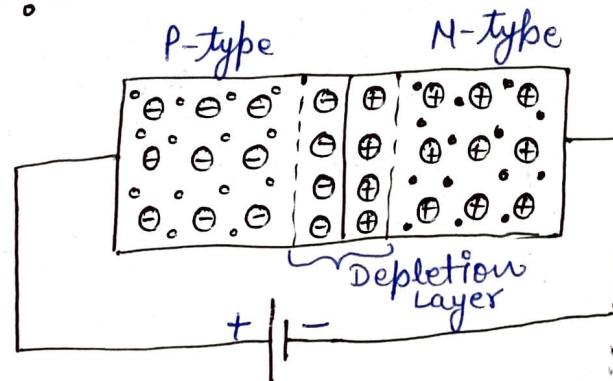 P-type
N-type
Depletion
Layer
+ −